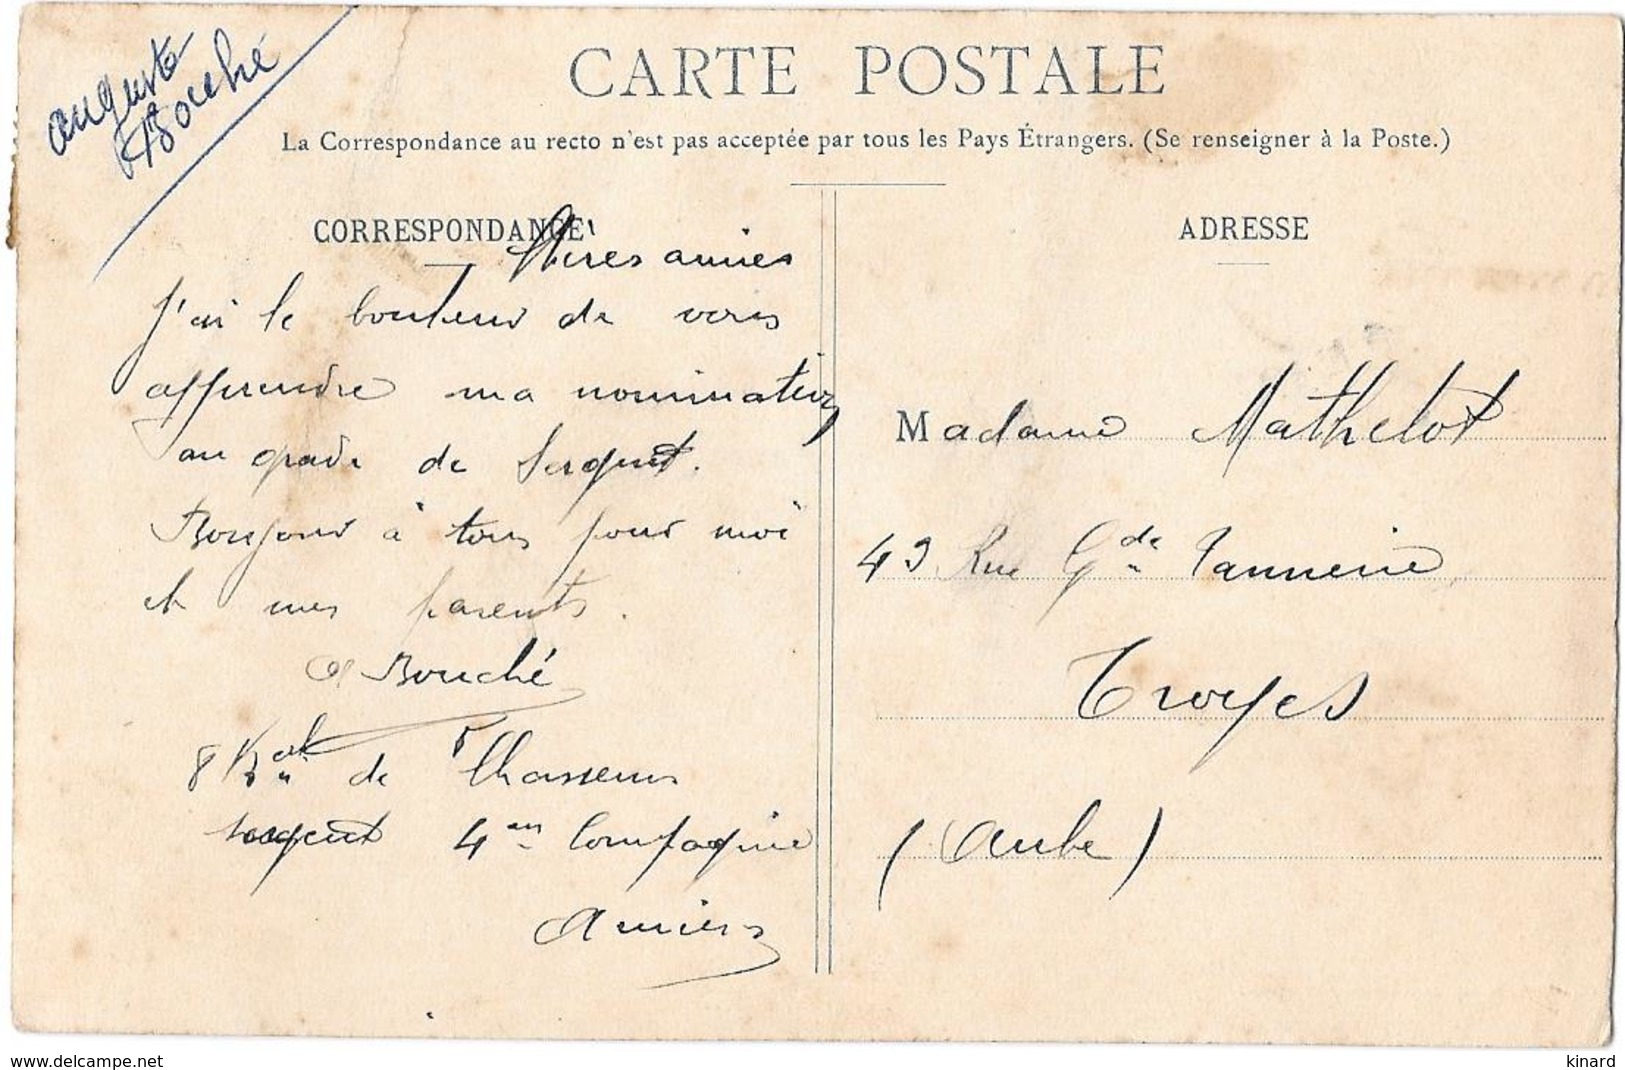 Auguste
Bouché
CARTE POSTALE
La Correspondance au recto n'est pas acceptée par tous les Pays Étrangers. (Se renseigner à la Poste.)
CORRESPONDANCE
amies
J'ai le bonheur de vous
apprendre ma nomination
au grade de Sergent.
Bonjour à tous pour moi
et mes parents.
A Bouché
8 Bon de Chasseurs
sergent 4em Compagnie
Amiens
ADRESSE
Madame Mathelot
43 Rue Gde Tannerie
Troyes
(Aube)
www.delcampe.net
kinard